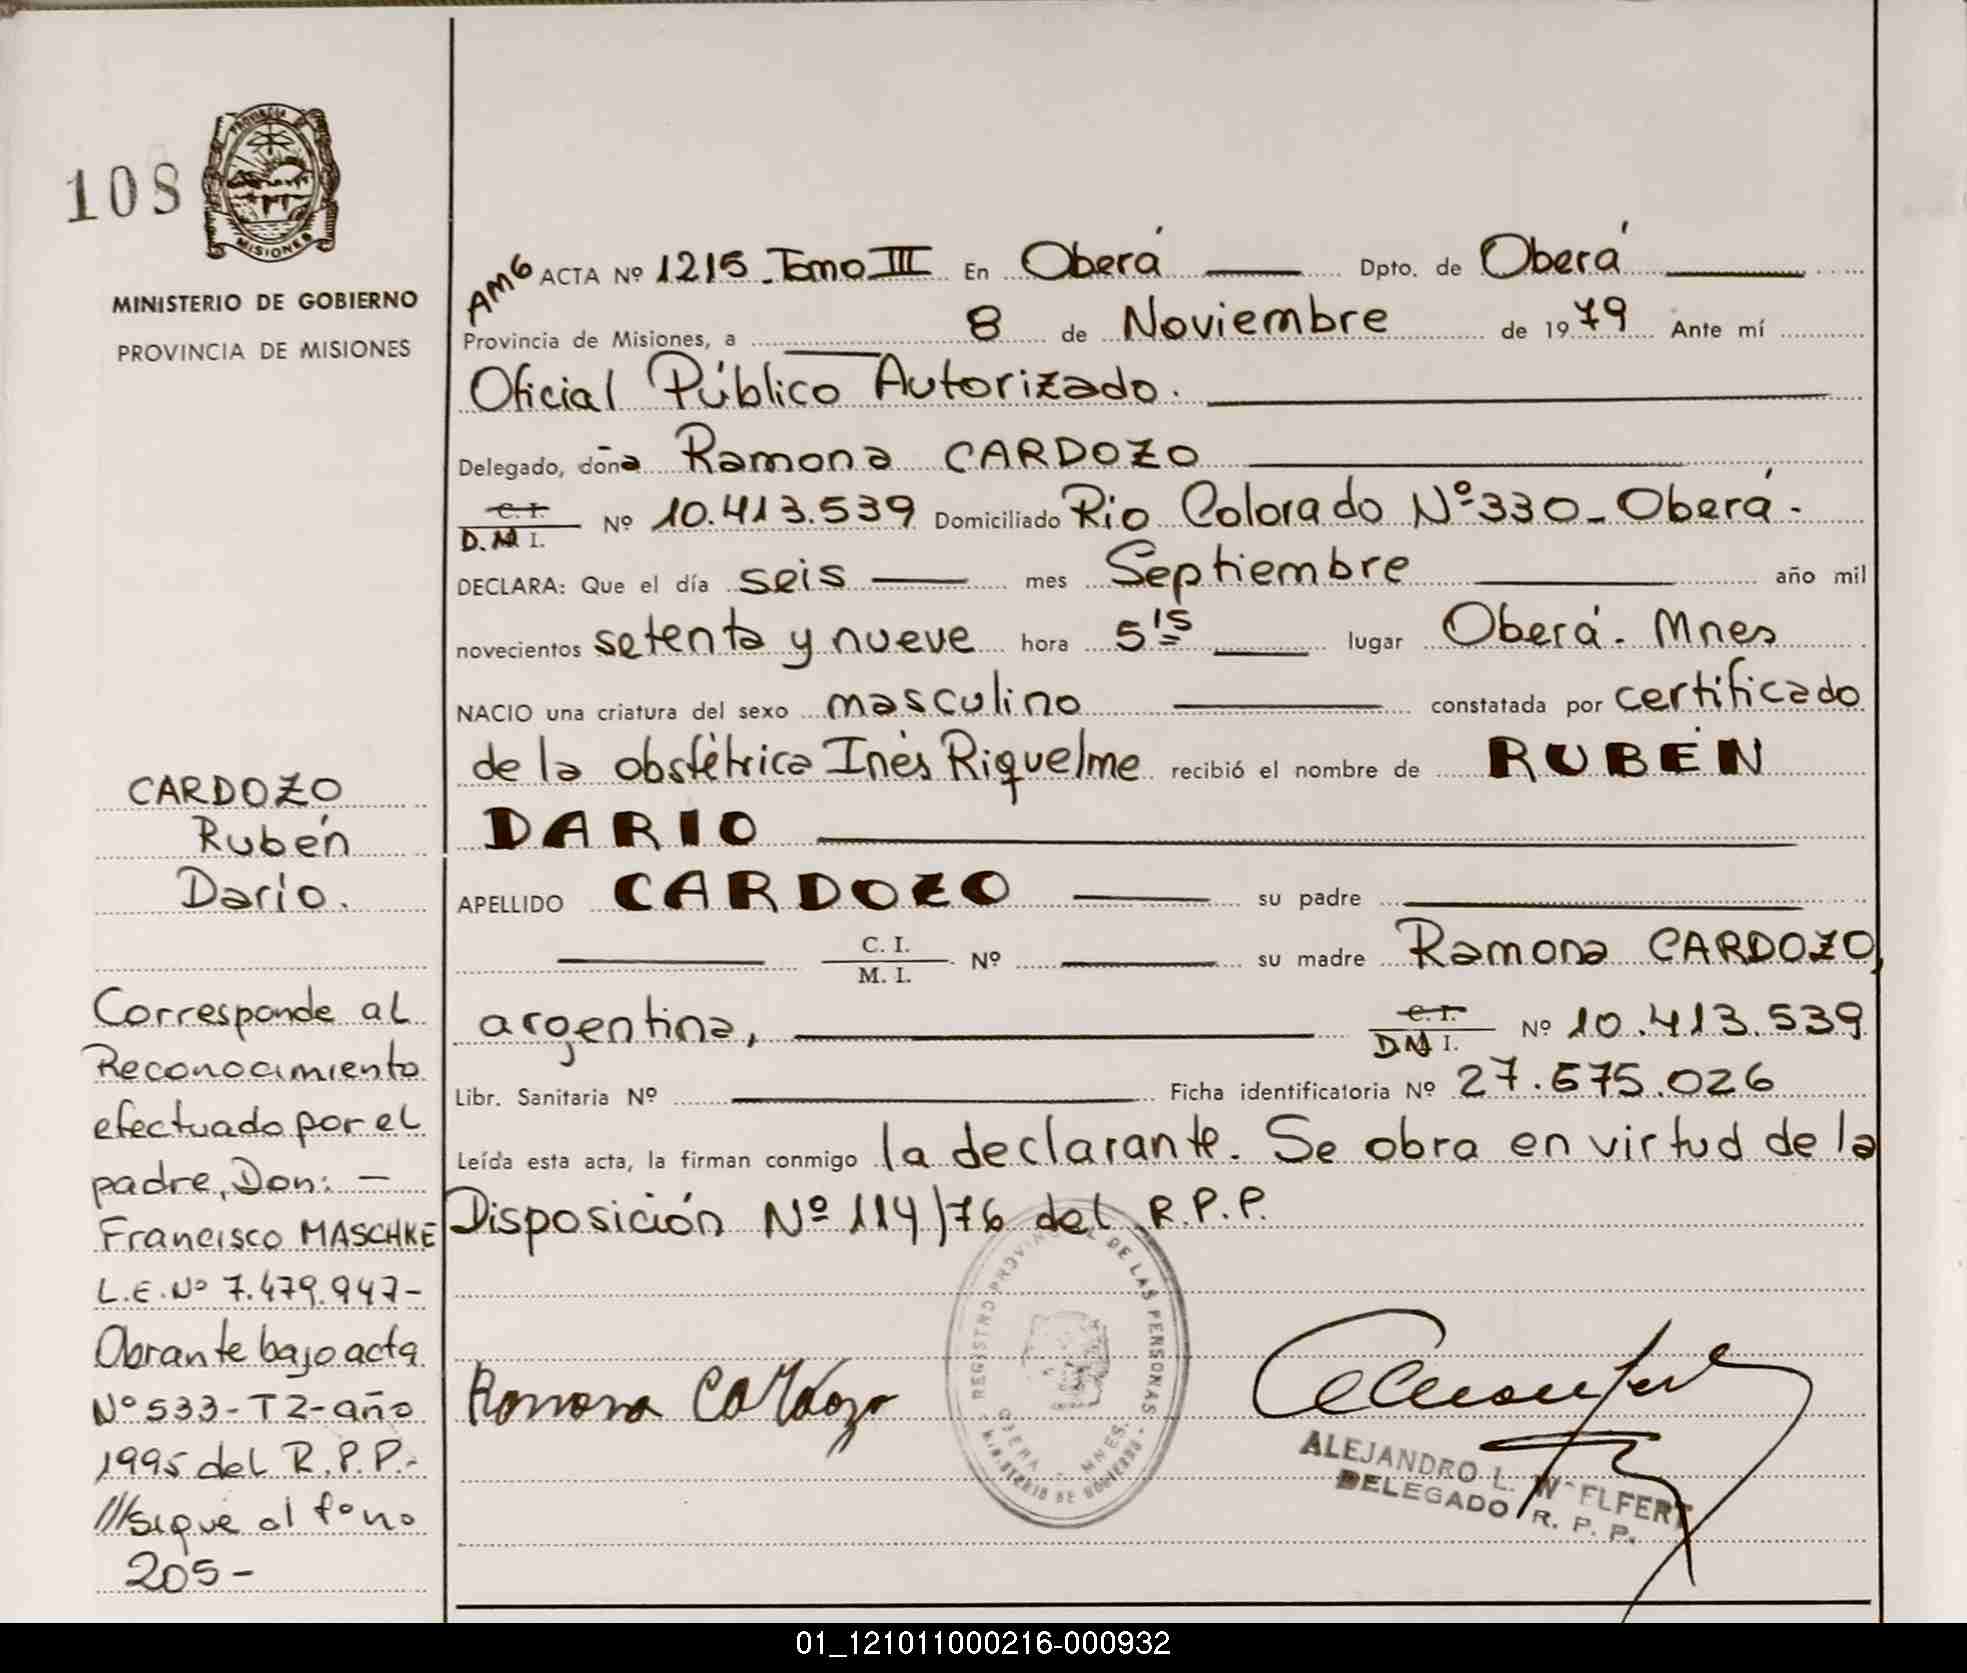 108
PROVINCIA DE
MISIONES
MINISTERIO DE GOBIERNO
PROVINCIA DE MISIONES
CARDOZO
Rubén
Darío.
Corresponde al
Reconocimiento
efectuado por el
padre, Don: —
Francisco MASCHKE
L.E. Nº 7.479.947-
Obrante bajo acta
Nº 533-T2-año
1995 del R.P.P.-
///sigue al fono
205-
AMG ACTA Nº 1215_Tomo III En Oberá Dpto. de Oberá
Provincia de Misiones, a 8 de Noviembre de 1979 Ante mí
Oficial Público Autorizado.
Delegado, doña Ramona CARDOZO
C.I.
D.N.I. Nº 10.413.539 Domiciliado Río Colorado Nº 330_ Oberá-
DECLARA: Que el día seis mes Septiembre año mil
novecientos setenta y nueve hora 5 15 lugar Oberá. Mnes
NACIO una criatura del sexo masculino constatada por certificado
de la obstétrica Inés Riquelme recibió el nombre de RUBÉN
DARIO
APELLIDO CARDOZO su padre
C. I.
M. I. Nº su madre Ramona CARDOZO,
argentina, C.I.
D.N.I. Nº 10.413.539
Libr. Sanitaria Nº Ficha identificatoria Nº 27.675.026
Leída esta acta, la firman conmigo la declarante. Se obra en virtud de la
Disposición Nº 114/76 del R.P.P.
REGISTRO PROVINCIAL DE LAS PERSONAS
OBERA - MNES.
MINISTERIO DE GOBIERNO
Ramona Cardozo
ALEJANDRO L. WELFERT
DELEGADO R. P. P.
01_121011000216-000932